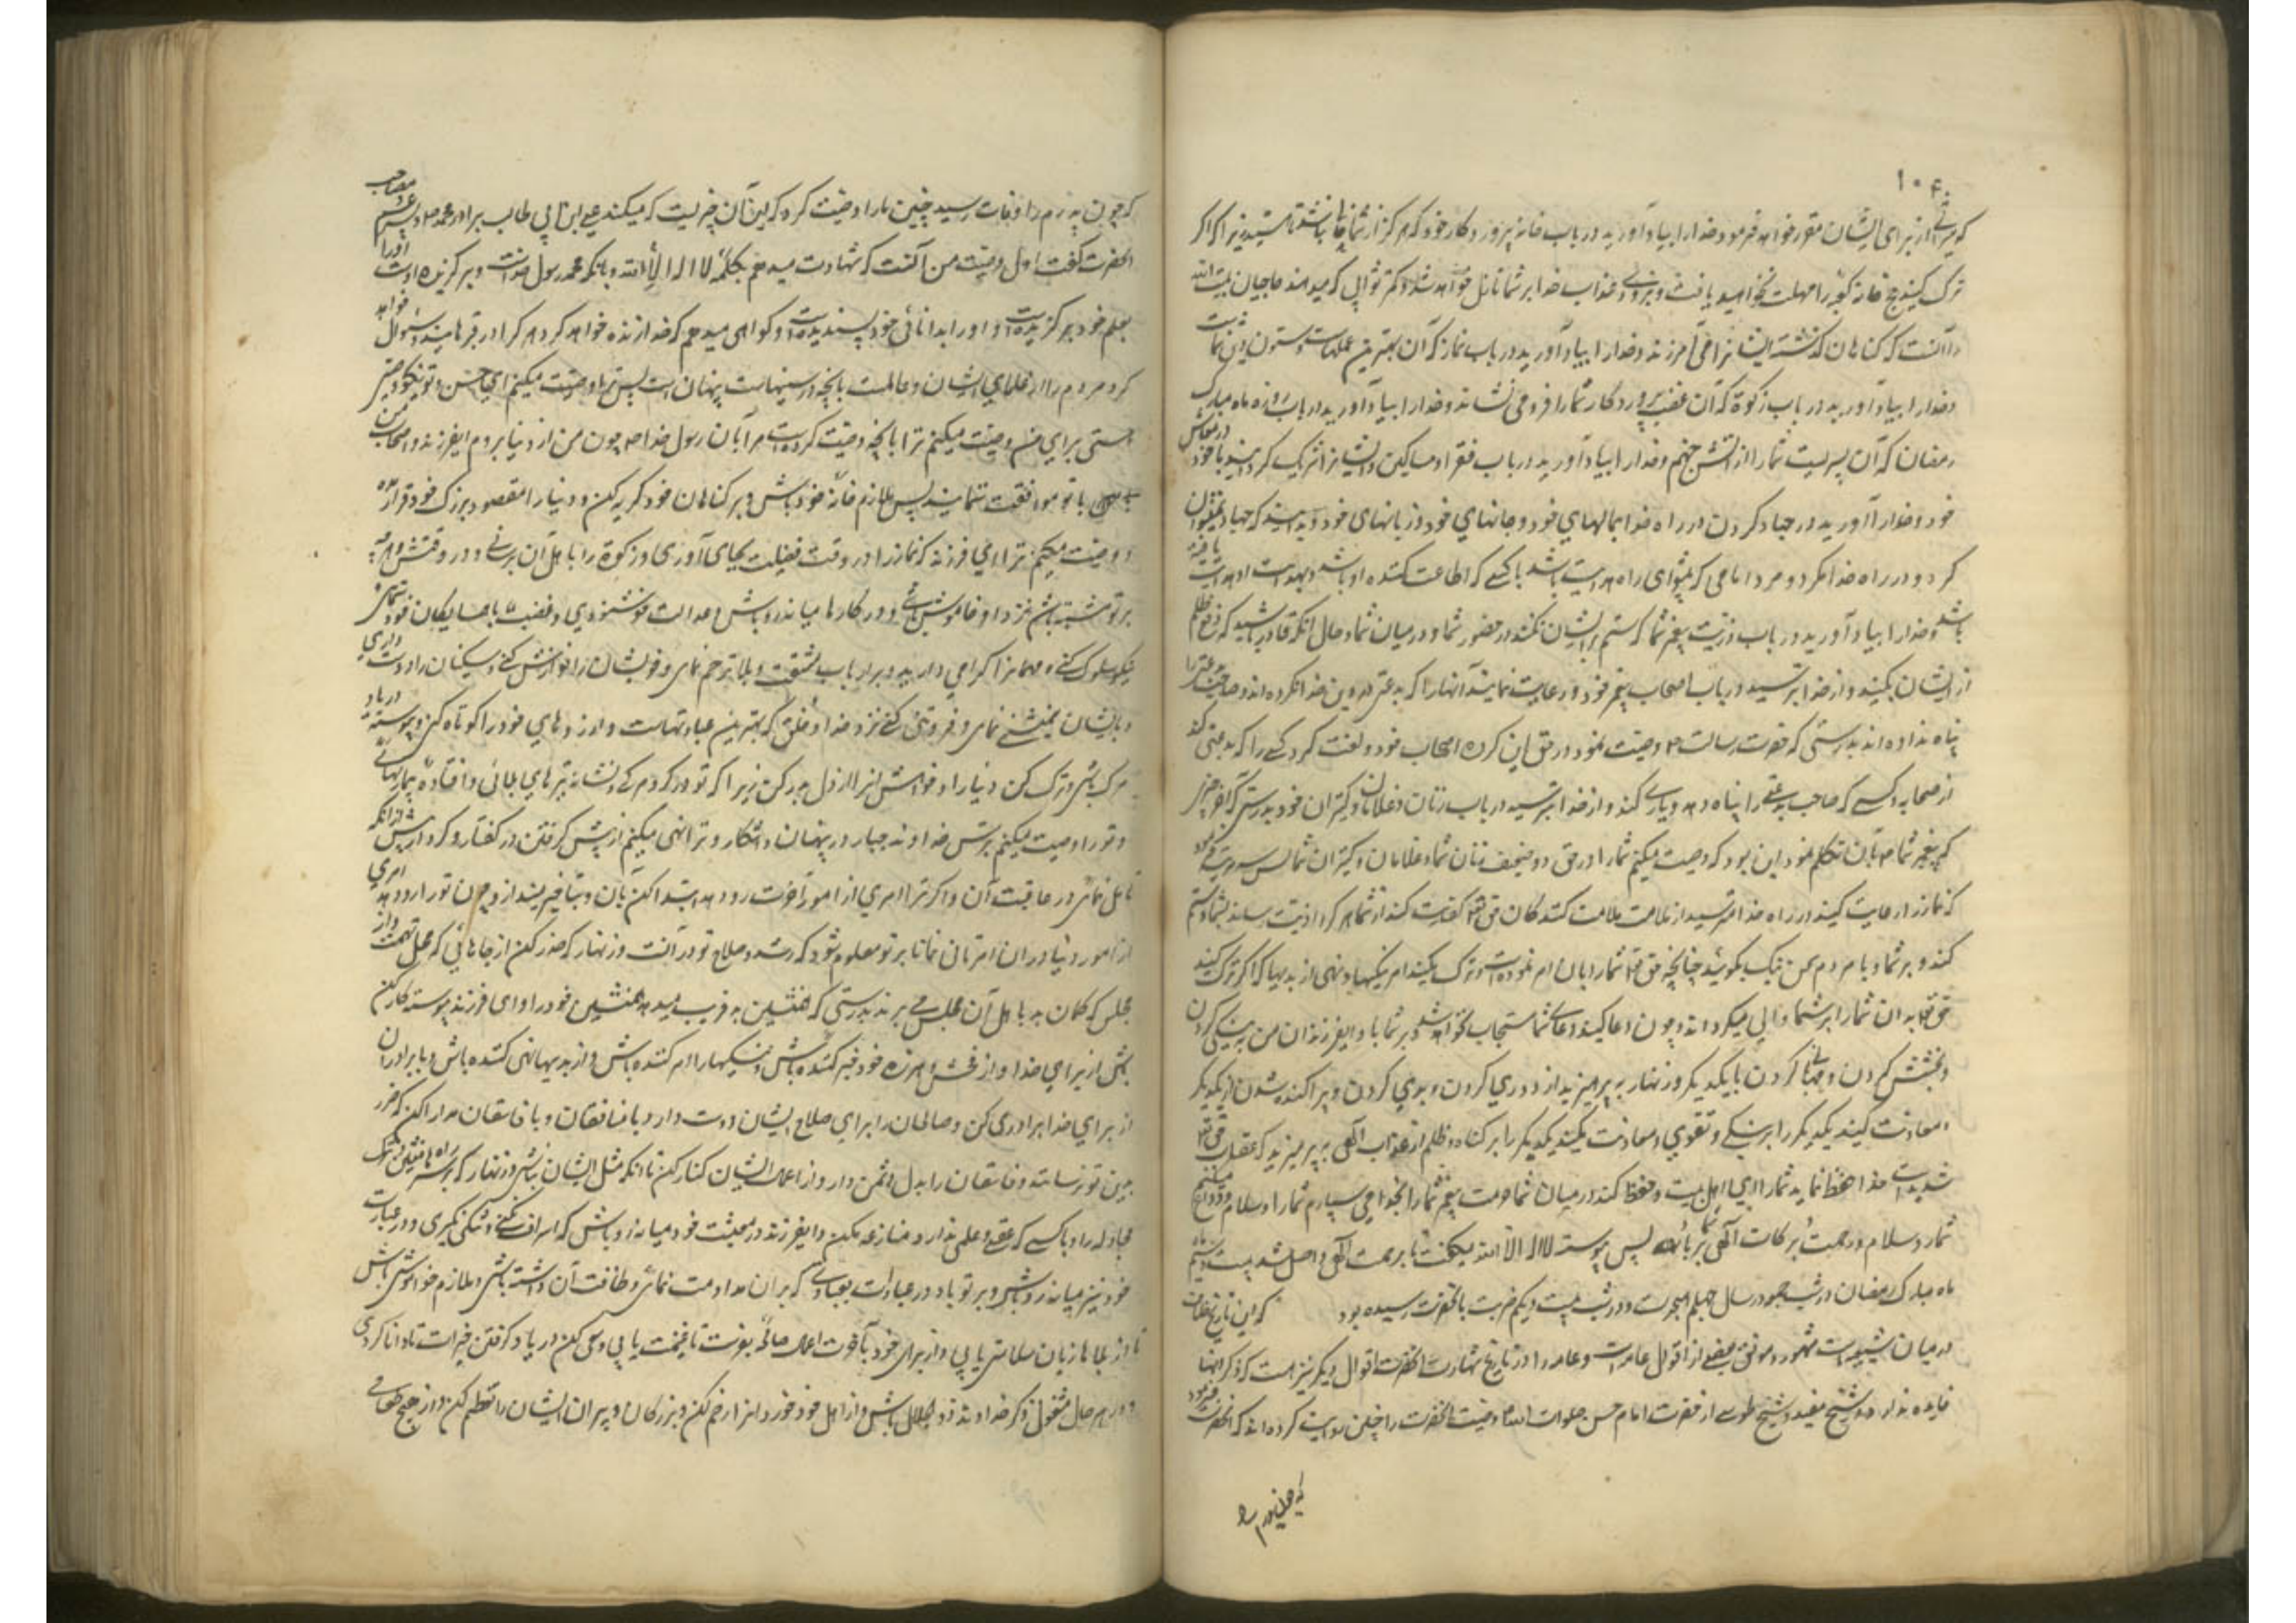 که میراثی از برای ایشان مقرر خواهد فرمود و خدا را بیاد آورید در باب خانه پروردگار خود که هرگز از شما خالی نباشد تا هستید زیرا که اگر
ترک کنید حج خانه کعبه را مهلت نخواهید یافت و بزودی عذاب خدا بر شما نازل خواهد شد و کمتر ثوابی که میدهند حاجیان بیت الله
را آنست که گناهان گذشته ایشان را می آمرزند و خدا را بیاد آورید در باب نماز که آن بهترین عملهاست و ستون دین شماست
و خدا را بیاد آورید در باب زکوة که آن غضب پروردگار شما را فرو می نشاند و خدا را بیاد آورید در باب روزه ماه مبارک
رمضان که آن سپریست شما را از آتش جهنم و خدا را بیاد آورید در باب فقرا و مساکین و ایشان را شریک گردانید با خود در معاش
خود و خدا را آورید در جهاد کردن در راه خدا بمالهای خود و جانهای خود و زبانهای خود و بدانید که جهاد نمیتوان
کرد و در راه خدا مگر دو مرد امامی که پیشوای راه هدایت باشد یا کسی که اطاعت کننده او باشد و بهدایت او هدایت یافته
باشد و خدا را بیاد آورید در باب ذریت پیغمبر شما که ستم بر ایشان نکنند در حضور شما و در میان شما و حال آنکه قادر باشید که دفع ظلم
از ایشان بکنید و از خدا بترسید در باب اصحاب پیغمبر خود و رعایت نمایند آنها را که بدعتی در دین خدا نکرده اند و صاحب بدعتی را
پناه نداده اند بدرستی که حضرت رسالت ص وصیت نمود در حق این گروه اصحاب خود و لعنت کرد کسی را که بدعتی کند
از صحابه و کسی که صاحب بدعتی را پناه دهد و یاری کند و از خدا بترسید در باب زنان و غلامان و کنیزان خود بدرستی که آخر چیزی
که پیغمبر شما ص بآن تکلم نمود این بود که وصیت میکنم شما را در حق دو ضعیف زنان شما و غلامان و کنیزان شما پس سه مرتبه فرمود
که نماز را رعایت کنید در راه خدا مترسید از ملامت ملامت کنندگان حق تعالی کفایت کند از شما هر که را اذیت رساند بشما و ستم
کند بر شما و با مردم سخن نیک بگوئید چنانچه حق تعالی شما را بان امر نموده است و ترک مکنید امر بنیکیها و نهی از بدیها که اگر ترک کنید
حق تعالی بدان شما را بر شما والی میگرداند و چون دعا کنید دعای شما مستجاب نخواهد شد و بر شما باد ای فرزندان من به نیکی کردن
و بخشش کردن و مهربانی کردن با یکدیگر و زنهار به پرهیزید از دوری کردن و بدی کردن و پراکنده شدن از یکدیگر
و معاونت کنید یکدیگر را بر نیکی و تقوی و معاونت مکنید یکدیگر را بر گناه و ظلم از عذاب الهی به پرهیزید که عقاب حق تعالی
شدید است خدا حفظ نماید شما را ای اهل بیت و حفظ کند در میان شما حرمت پیغمبر شما را بخدا می سپارم شما را و سلام وداع میکنم
شما را و سلام و رحمت و برکات الهی بر شما باد پس پیوسته لا اله الا الله میگفت تا برحمت الهی واصل شد در شب بیست و سیم
ماه مبارک رمضان در شب جمعه در سال چهلم هجرت و در شب بیست و یکم ضربت بآنحضرت رسیده بود که این تاریخ شهادت
در میان شیعه است مشهور و موافق بعضی از اقوال عامه است و عامه را در تاریخ شهادت آنحضرت اقوال دیگر نیز هست که ذکر آنها
فایده ندارد و شیخ مفید و شیخ طوسی از حضرت امام حسن صلوات الله وصیت آنحضرت را چنین روایت کرده اند که آنحضرت فرمود
که چون پدرم را وفات رسید چنین ما را وصیت کرد که این آن چیزیست که میکند علی ابن ابی طالب برادر محمد ص و پسر عم و مصاحب
آنحضرت گفت اول وصیت من آنست که شهادت میدهم بکلمه لا اله الا الله و بآنکه محمد رسول خداست و برگزیده اوست او را
بعلم خود برگزیده است و او را بدانائی خود پسندیده است و گواهی میدهم که خدا زنده خواهد کرد هر که را در قبرهایند و سئوال خواهد
کرد مردم را از عملهای ایشان و عالمست بآنچه در سینهاست پنهان است پس ترا وصیت میکنم ای حسن و تو نیکو وصی
هستی برای من وصیت میکنم ترا بآنچه وصیت کرده است مرا بآن رسول خدا ص چون من از دنیا بروم ای فرزند و اصحاب من
با تو موافقت ننمایند پس ملازم خانه خود باش و بر گناهان خود گریه کن و دنیا را مقصود بزرگ خود قرار مده
و وصیت میکنم ترا ای فرزند که نماز را در وقت فضیلت بجای آوری و زکوة را باهل آن برسانی و در وقتش و هر چه
بر تو مشتبه باشد نزد او خاموش باشی و در کارها میانه رو باش و عدالت در خشنودی و غضب و با همسایگان خود شمای
نیکو سلوک کنی و مهمان را گرامی دارید و بر ارباب مشقت و بلا ترحم نمای و خویشان را نوازش کنی و مسکینان را دوست داری
و با ایشان همنشینی نمای و فروتنی کنی نزد خدا و خلق که بهترین عبادتهاست و آرزوهای خود را کوتاه کن و پیوسته در یاد
مرگ باشی و ترک کن دنیا را و خواهش آنرا از دل بدر کن زیرا که تو در گرو مرگی و نشانه تیرهای بلائی و افتاده بیماریهائی
و تو را وصیت میکنم بترس خداوند جبار در پنهان و آشکار و ترا نهی میکنم از پیش گرفتن در گفتار و کردار پیش از آنکه
تامل نمائی در عاقبت آن و اگر ترا امری از امور آخرت رو دهد ابتدا کن بآن و تأخیر مینداز و چون تو را رو دهد امری
از امور دنیا در آن امر تانی نما تا بر تو معلوم شود که رشد و صلاح تو در آنست و زنهار که حذر کن از جاهائی که محل تهمت و از
مجلس که گمان بد باهل آن مجلس می برند بدرستی که همنشین بد فریب میدهد همنشین خود را و ای فرزند پیوسته کار کن
بکن از برای خدا و از فحش و هرزه خود زجر کننده باش و بنیکیها را امر کننده باش و از بدیها نهی کننده باش و با برادران
از برای خدا برادری کن و صالحان را برای صلاح ایشان دوست دار و با منافقان و با فاسقان مدارا کن که ضرر
بدین تو نرسانند و فاسقان را بدل دشمن دار و از اعمال ایشان کناره کن تا آنکه مثل ایشان نباشی و زنهار که بر سر راه ها منشین و ترک
مجادله را و با کسی که عقلی و علمی ندارد منازعه مکن و ای فرزند در معیشت خود میانه رو باش که اسراف نکنی و تنگی نگیری و در عبادت
خود نیز میانه رو باش و بر تو باد در عبادت بعبادتی که بر آن مداومت نمائی و طاقت آن داشته باشی و ملازم خاموشی باش
تا از بلاها زبان سلامتی یابی و از برای خود بآخرت اعمال صالحه بفرست تا غنیمت یابی و سعی کن در یاد گرفتن خیرات تا دانا گردی
و در هر حال مشغول ذکر خداوند ذو الجلال باش و از اهل خود خوردان را رحم کن و بزرگان و پیران ایشان را تعظیم کن و از هیچ طعامی